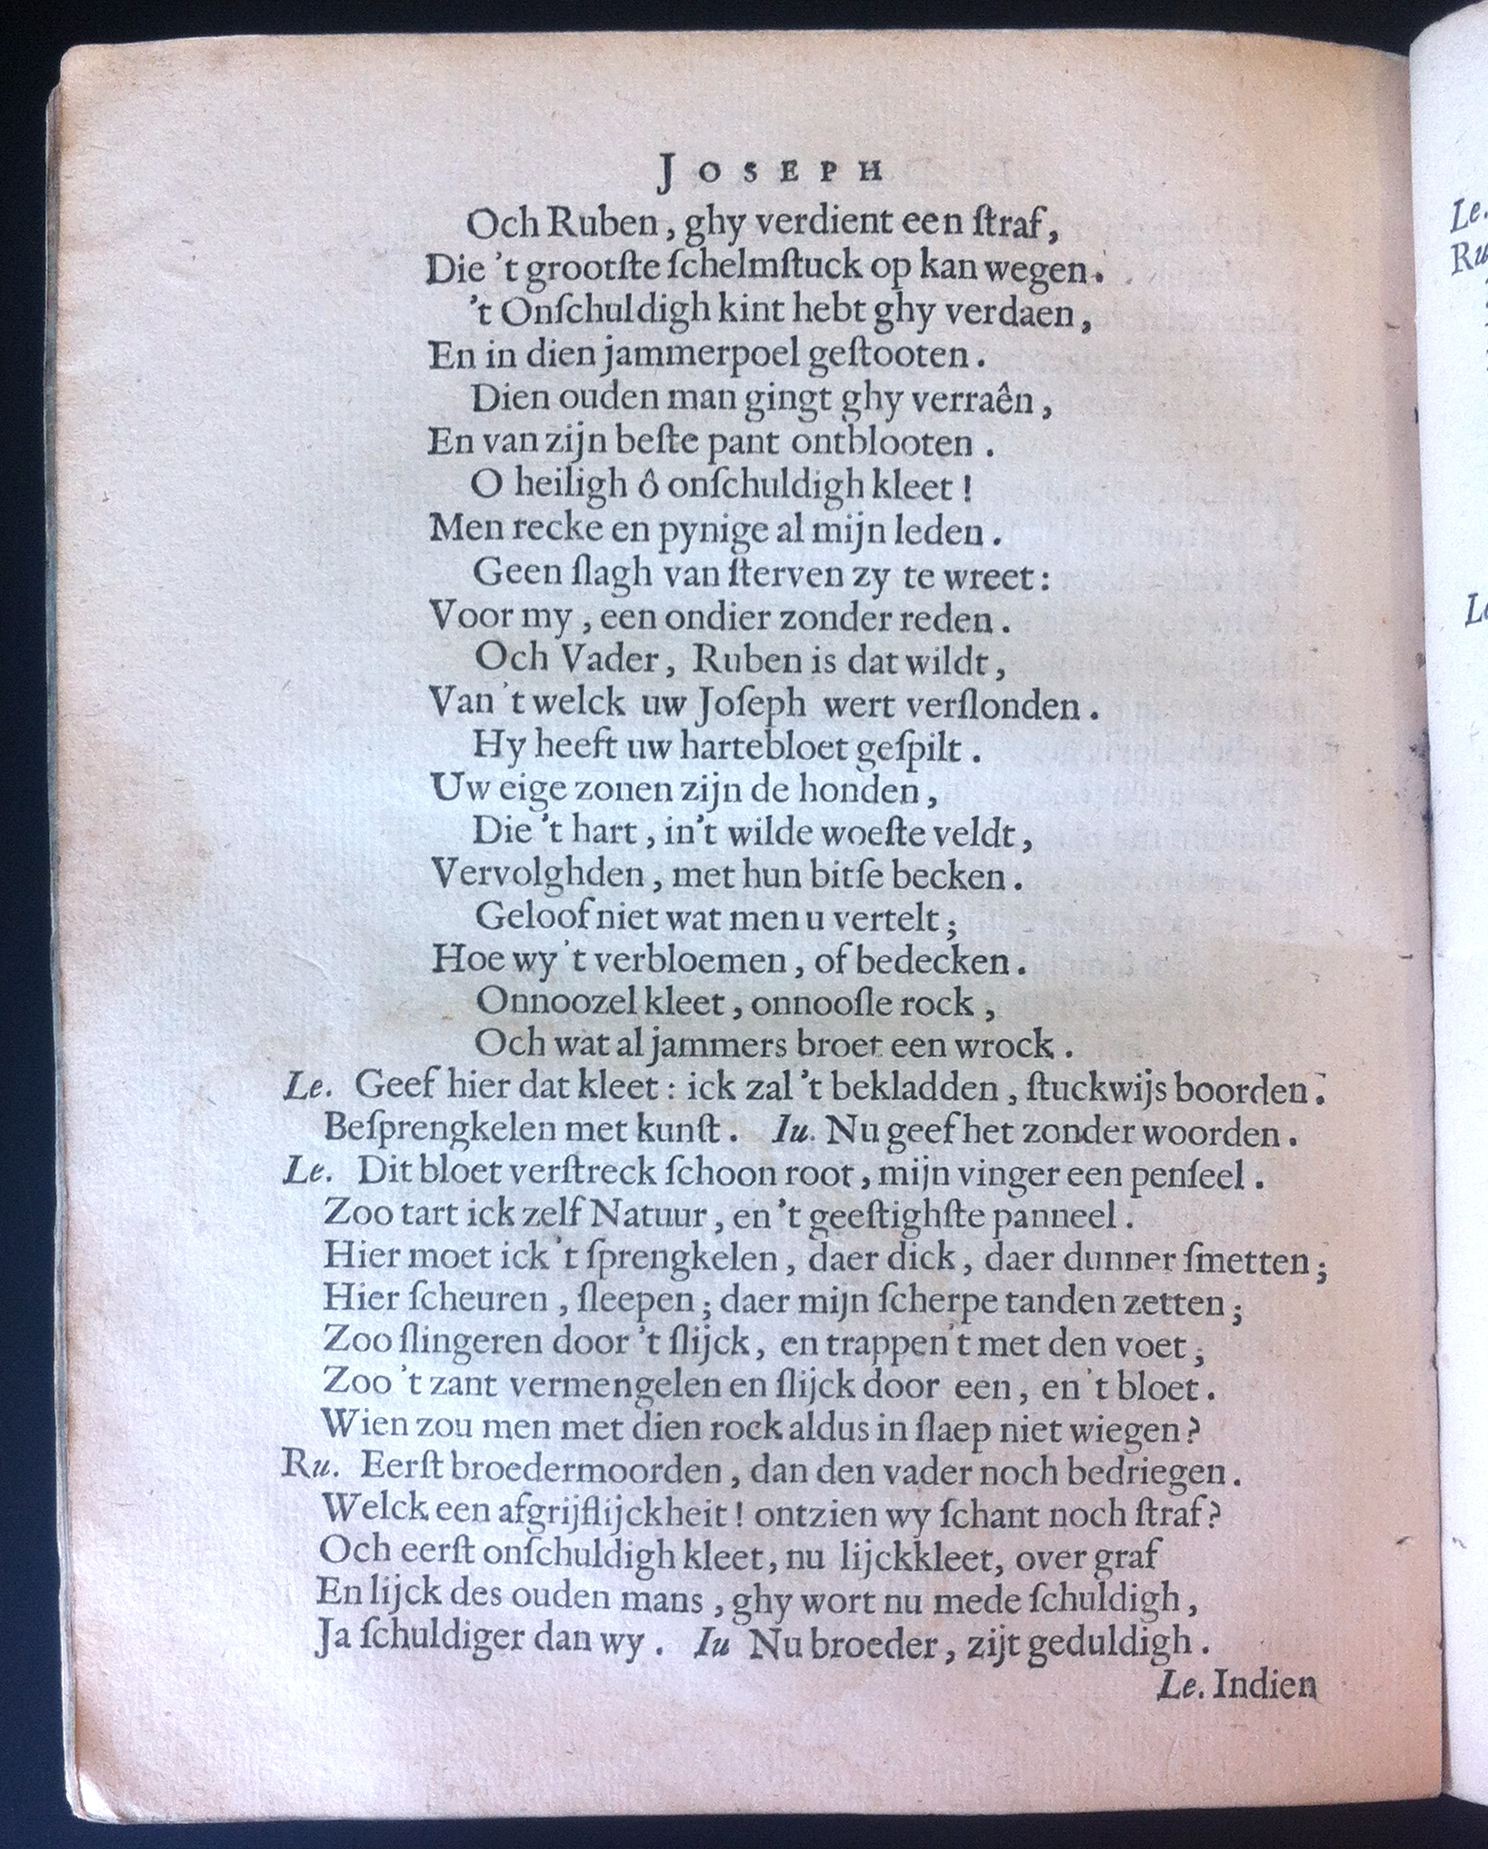 JOSEPH
Och Ruben, ghy verdient een ſtraf,
Die 't grootſte ſchelmſtuck op kan wegen.
't Onſchuldigh kint hebt ghy verdaen,
En in dien jammerpoel geſtooten.
Dien ouden man gingt ghy verraên,
En van zijn beſte pant ontblooten.
O heiligh ô onſchuldigh kleet!
Men recke en pynige al mijn leden.
Geen ſlagh van ſterven zy te wreet:
Voor my, een ondier zonder reden.
Och Vader, Ruben is dat wildt,
Van 't welck uw Joſeph wert verſlonden.
Hy heeft uw hartebloet geſpilt.
Uw eige zonen zijn de honden,
Die 't hart, in't wilde woeſte veldt,
Vervolghden, met hun bitſe becken.
Geloof niet wat men u vertelt;
Hoe wy 't verbloemen, of bedecken.
Onnoozel kleet, onnooſle rock,
Och wat al jammers broet een wrock.
Le. Geef hier dat kleet: ick zal 't bekladden, ſtuckwijs boorden.
Beſprengkelen met kunſt. Iu. Nu geef het zonder woorden.
Le. Dit bloet verſtreck ſchoon root, mijn vinger een penſeel.
Zoo tart ick zelf Natuur, en 't geeſtighſte panneel.
Hier moet ick 't ſprengkelen, daer dick, daer dunner ſmetten;
Hier ſcheuren, ſleepen; daer mijn ſcherpe tanden zetten;
Zoo ſlingeren door 't ſlijck, en trappen't met den voet;
Zoo 't zant vermengelen en ſlijck door een, en 't bloet.
Wien zou men met dien rock aldus in ſlaep niet wiegen?
Ru. Eerſt broedermoorden, dan den vader noch bedriegen.
Welck een afgrijſlijckheit! ontzien wy ſchant noch ſtraf?
Och eerſt onſchuldigh kleet, nu lijckkleet, over graf
En lijck des ouden mans, ghy wort nu mede ſchuldigh,
Ja ſchuldiger dan wy. Iu Nu broeder, zijt geduldigh.
Le. Indien
Le.